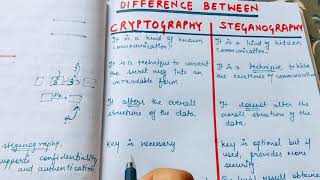 DIFFERENCE BETWEEN
CRYPTOGRAPHY
STEGANOGRAPHY
It is a kind of known
communication.
It is a kind of hidden
communication
It is a technique to convert
the secret msg into an
unreadable form.
It is a technique to hide
the existence of communication
It alters the overall
structure of the data.
It doesnot alter the
overall structure of
the data.
Key is necessary
Key is optional but if
used, provides more
security
steganography,
supports confidentiality
and authentication
result obtained